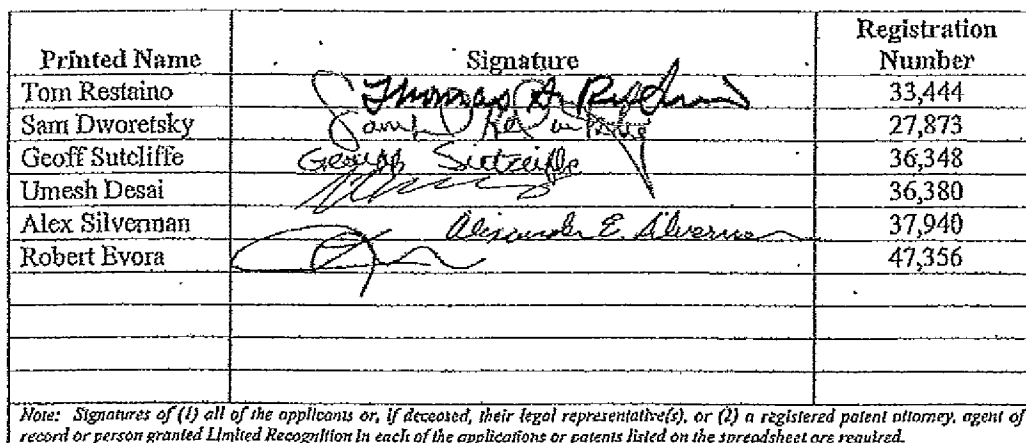 Printed Name Signature Registration Number
Tom Restaino Thomas A. Restaino 33,444
Sam Dworetsky Samuel 27,873
Geoff Sutcliffe Geoffrey Sutcliffe 36,348
Umesh Desai 36,380
Alex Silverman Alexander E. Silverman 37,940
Robert Evora 47,356
Note: Signatures of (1) all of the applicants or, if deceased, their legal representative(s), or (2) a registered patent attorney, agent of
record or person granted Limited Recognition in each of the applications or patents listed on the spreadsheet are required.